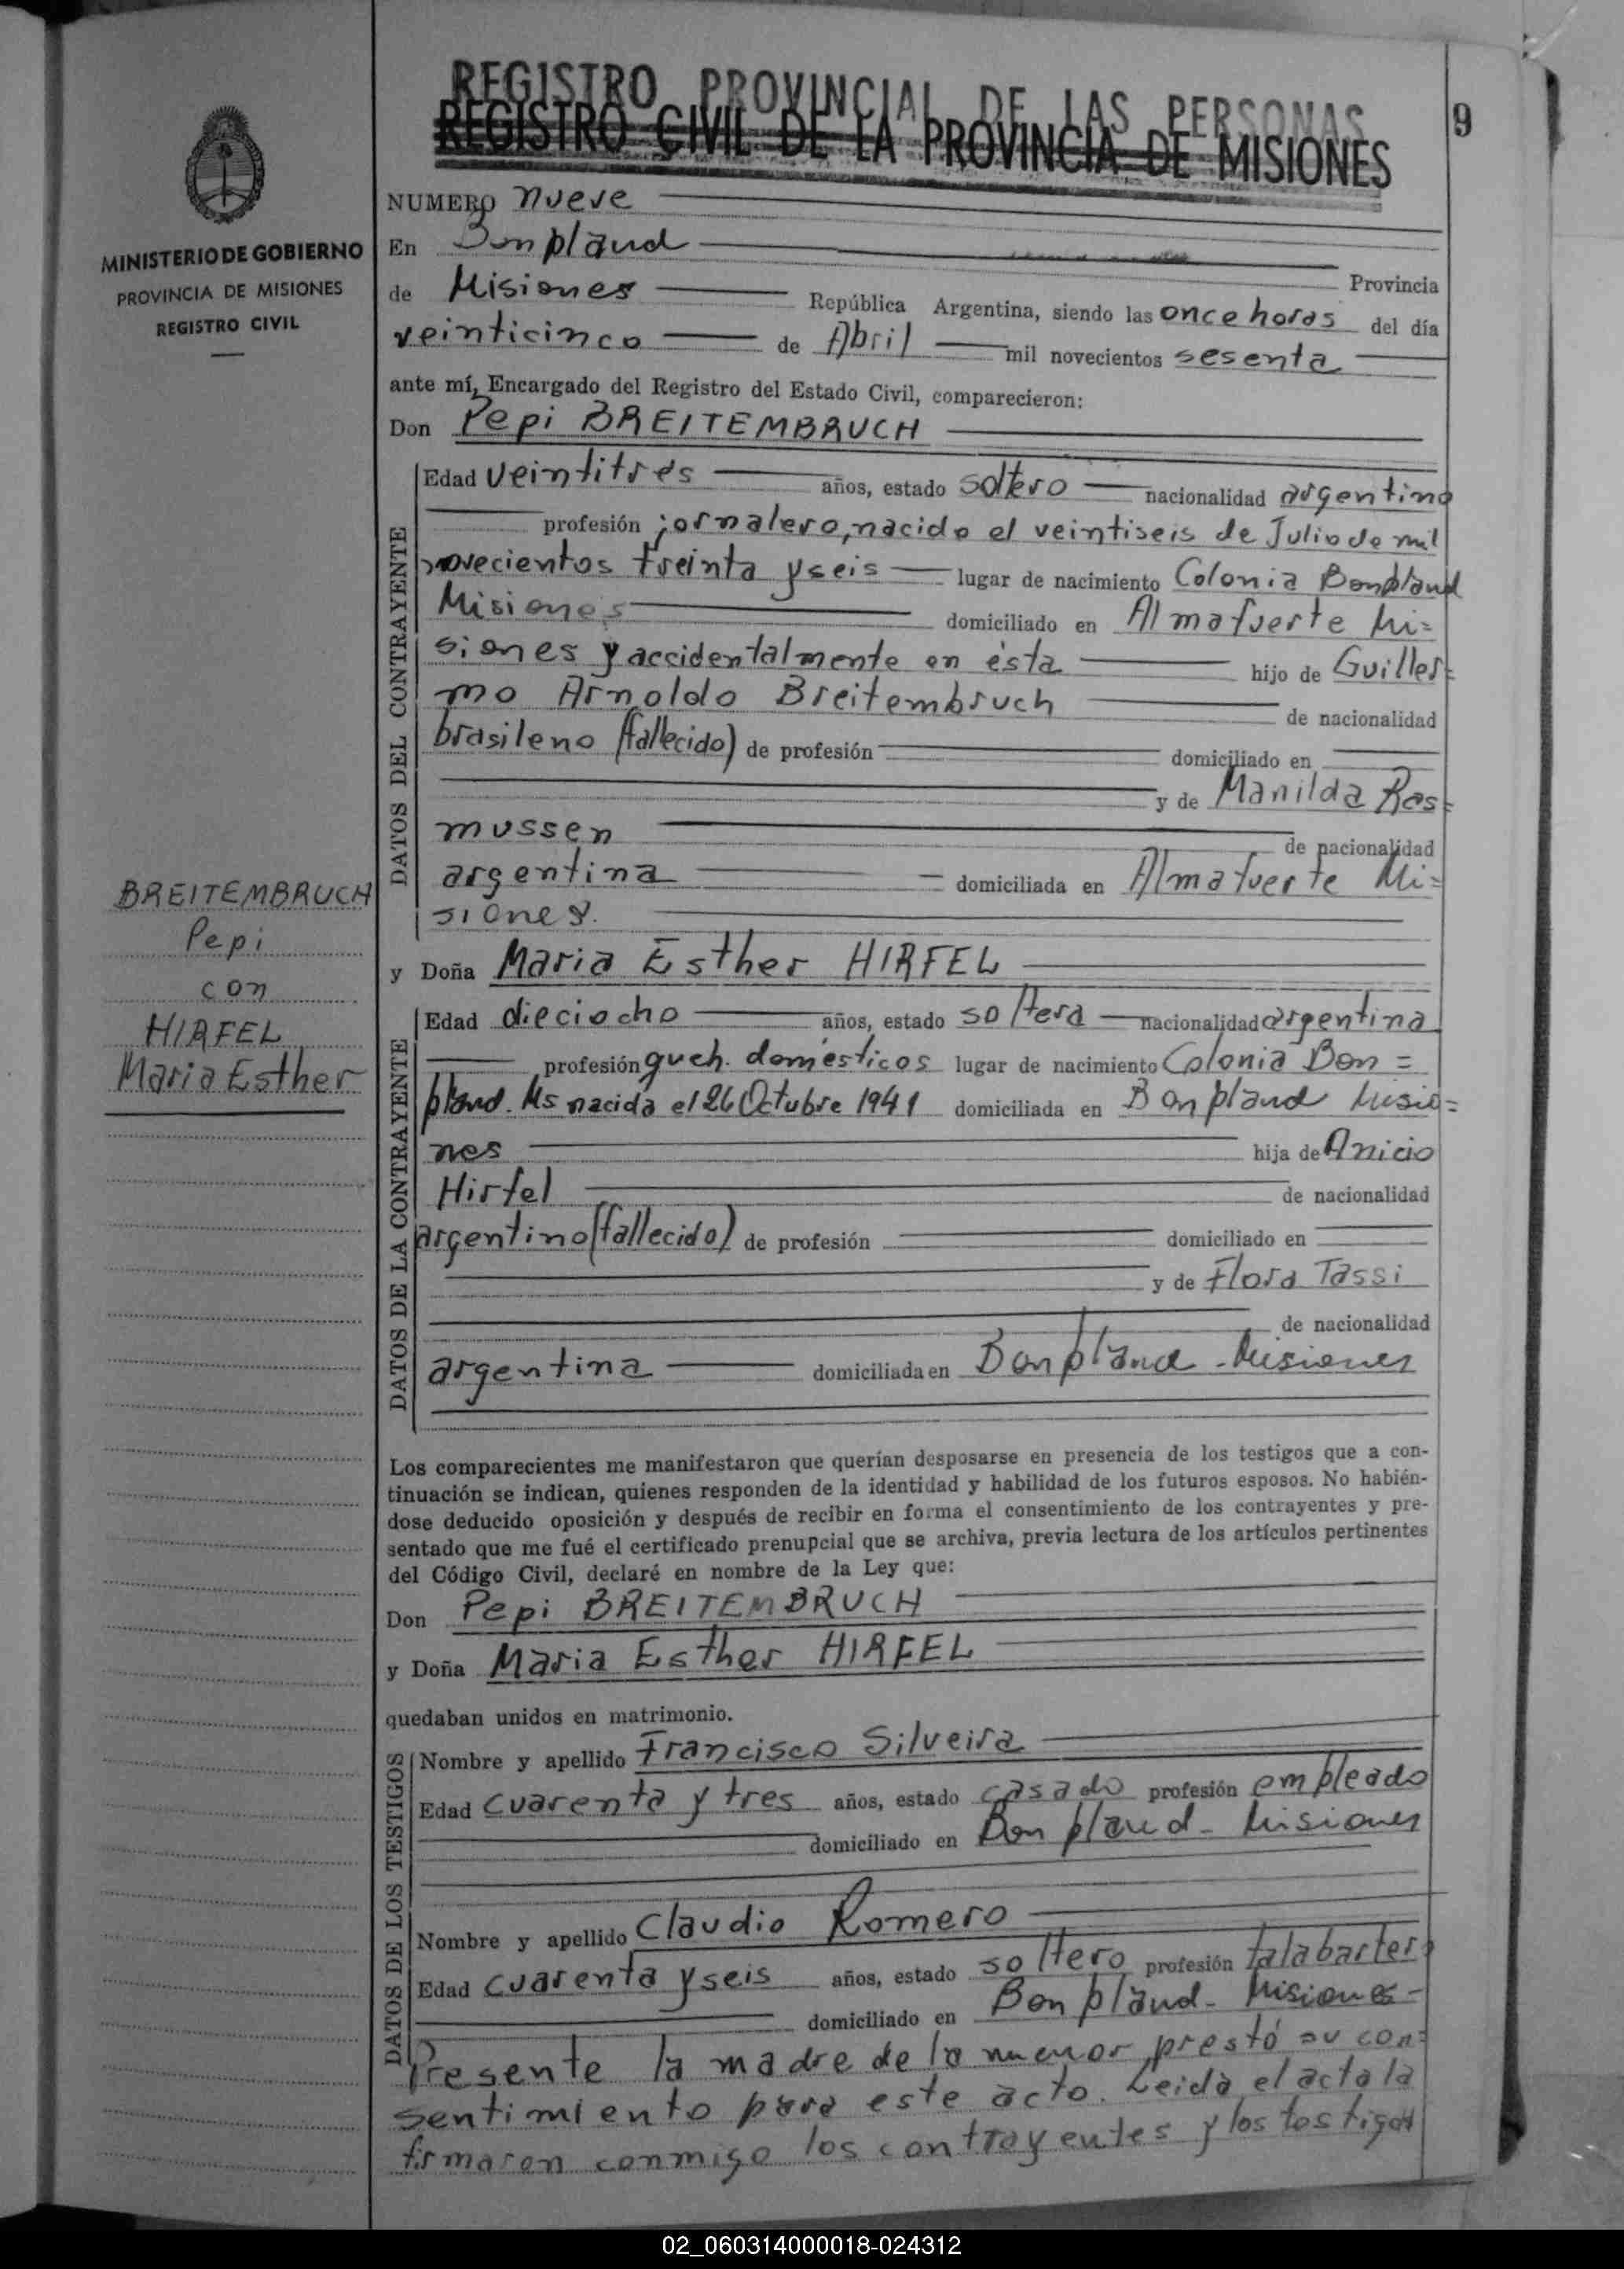 REGISTRO PROVINCIAL DE LAS PERSONAS
REGISTRO CIVIL DE LA PROVINCIA DE MISIONES
9
MINISTERIO DE GOBIERNO
PROVINCIA DE MISIONES
REGISTRO CIVIL
NUMERO nueve
En Bonpland
Provincia
de Misiones República Argentina, siendo las once horas del día
veinticinco de Abril mil novecientos sesenta
ante mí, Encargado del Registro del Estado Civil, comparecieron:
Don Pepi BREITEMBRUCH
DATOS DEL CONTRAYENTE
Edad veintitres años, estado soltero nacionalidad argentino
profesión jornalero, nacido el veintiseis de Julio de mil
novecientos treinta y seis lugar de nacimiento Colonia Bonpland
Misiones domiciliado en Almafuerte Mi=
siones y accidentalmente en ésta hijo de Guiller=
mo Arnoldo Breitembruch de nacionalidad
brasileno (fallecido) de profesión domiciliado en
y de Manilda Ras=
mussen de nacionalidad
argentina domiciliada en Almafuerte Mi=
siones.
BREITEMBRUCH
Pepi
con
HIRFEL
Maria Esther
y Doña Maria Esther HIRFEL
DATOS DE LA CONTRAYENTE
Edad dieciocho años, estado soltera nacionalidad argentina
profesión queh. domésticos lugar de nacimiento Colonia Bon=
pland. Ms nacida el 26 Octubre 1941 domiciliada en Bonpland Misio=
nes hija de Anicio
Hirfel de nacionalidad
argentino (fallecido) de profesión domiciliado en
y de Flora Tassi
de nacionalidad
argentina domiciliada en Bonpland - Misiones
Los comparecientes me manifestaron que querían desposarse en presencia de los testigos que a con-
tinuación se indican, quienes responden de la identidad y habilidad de los futuros esposos. No habién-
dose deducido oposición y después de recibir en forma el consentimiento de los contrayentes y pre-
sentado que me fué el certificado prenupcial que se archiva, previa lectura de los artículos pertinentes
del Código Civil, declaré en nombre de la Ley que:
Don Pepi BREITEMBRUCH
y Doña Maria Esther HIRFEL
quedaban unidos en matrimonio.
DATOS DE LOS TESTIGOS
Nombre y apellido Francisco Silveira
Edad cuarenta y tres años, estado casado profesión empleado
domiciliado en Bonpland - Misiones
Nombre y apellido Claudio Romero
Edad cuarenta y seis años, estado soltero profesión talabartero
domiciliado en Bonpland - Misiones -
Presente la madre de la menor prestó su con=
sentimiento para este acto. Leida el acta la
firmaron conmigo los contrayentes y los testigos
02_060314000018-024312